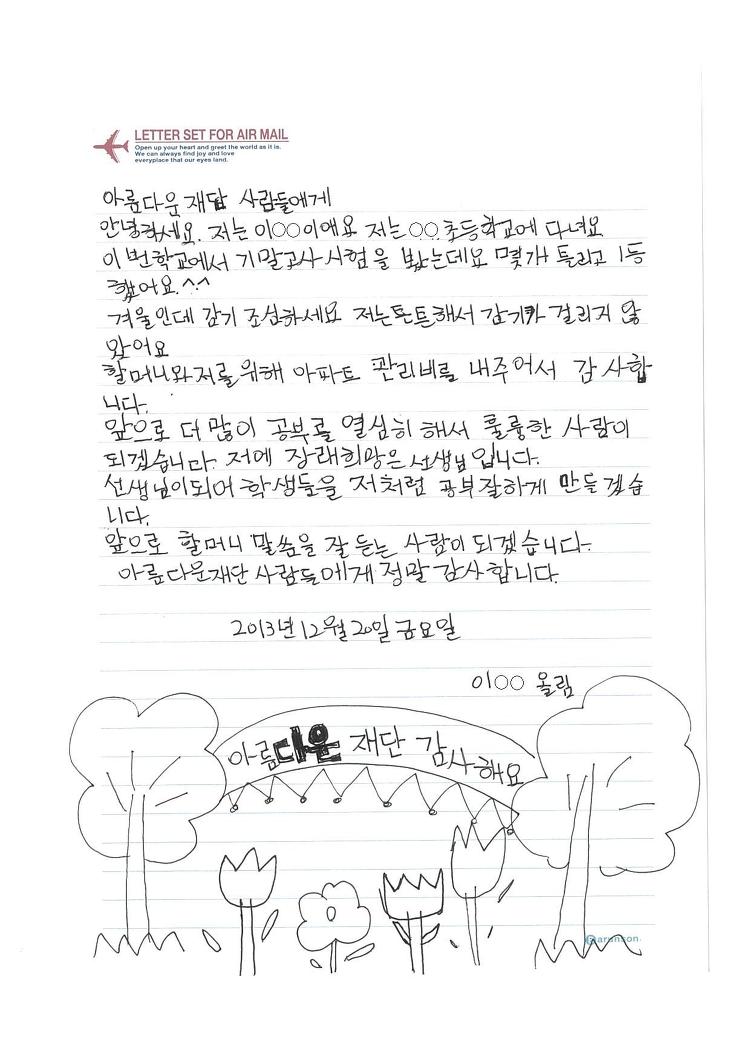 LETTER SET FOR AIR MAIL
Open up your heart and greet the world as it is.
We can always find joy and love
everyplace that our eyes land.
아름다운재단 사람들에게
안녕하세요. 저는 이○○이에요 저는 ○○초등학교에 다녀요
이번학교에서 기말고사 시험을 봤는데요 몇개 틀리고 1등
했어요.^^
겨울인데 감기 조심하세요 저는튼튼해서 감기가 걸리지 않
았어요
할머니와저를위해 아파트 관리비를 내주어서 감사합
니다.
앞으로 더 많이 공부를 열심히 해서 훌륭한 사람이
되겠습니다. 저에 장래희망은 선생님입니다.
선생님이되어 학생들을 저처럼 공부잘하게 만들겠습
니다.
앞으로 할머니 말씀을 잘 듣는 사람이 되겠습니다.
아름다운재단 사람들에게 정말 감사합니다.
2013년 12월 20일 금요일
이○○ 올림
아름다운 재단 감사해요
Barunson